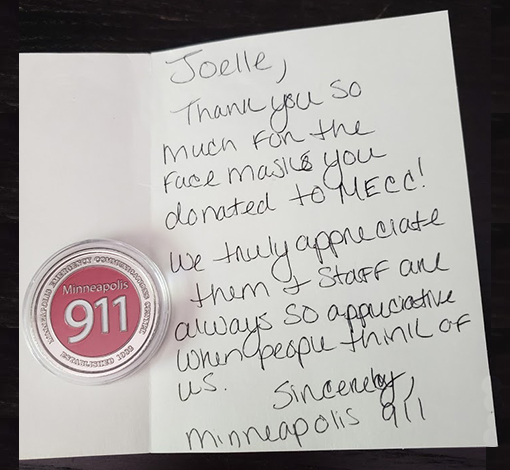 Joelle,
Thank you so
much for the
face masks you
donated to MECC!
We truly appreciate
them & staff are
always so appreciative
when people think of
us.
Sincerely,
Minneapolis 911
MINNEAPOLIS EMERGENCY COMMUNICATIONS CENTER
Minneapolis
911
ESTABLISHED